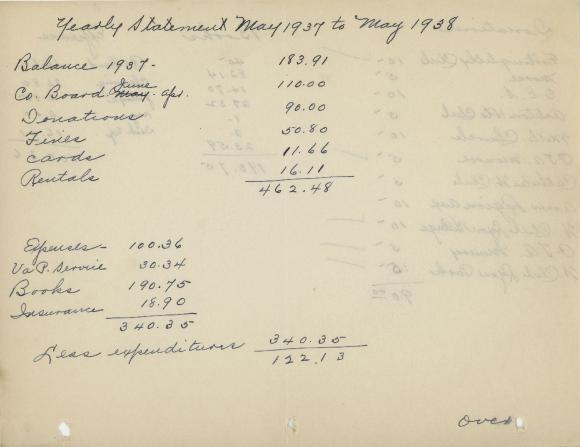 Yearly Statement May 1937 to May 1938
Balance 1937- 183.91
Co. Board June May. aps. 110.00
Donations 90.00
Fines 50.80
Cards 11.66
Rentals 16.11
462.48
Expenses- 100.36
Va P. Service 30.34
Books 190.75
Insurance 18.90
340.35
Less expenditures 340.35
122.13
Over